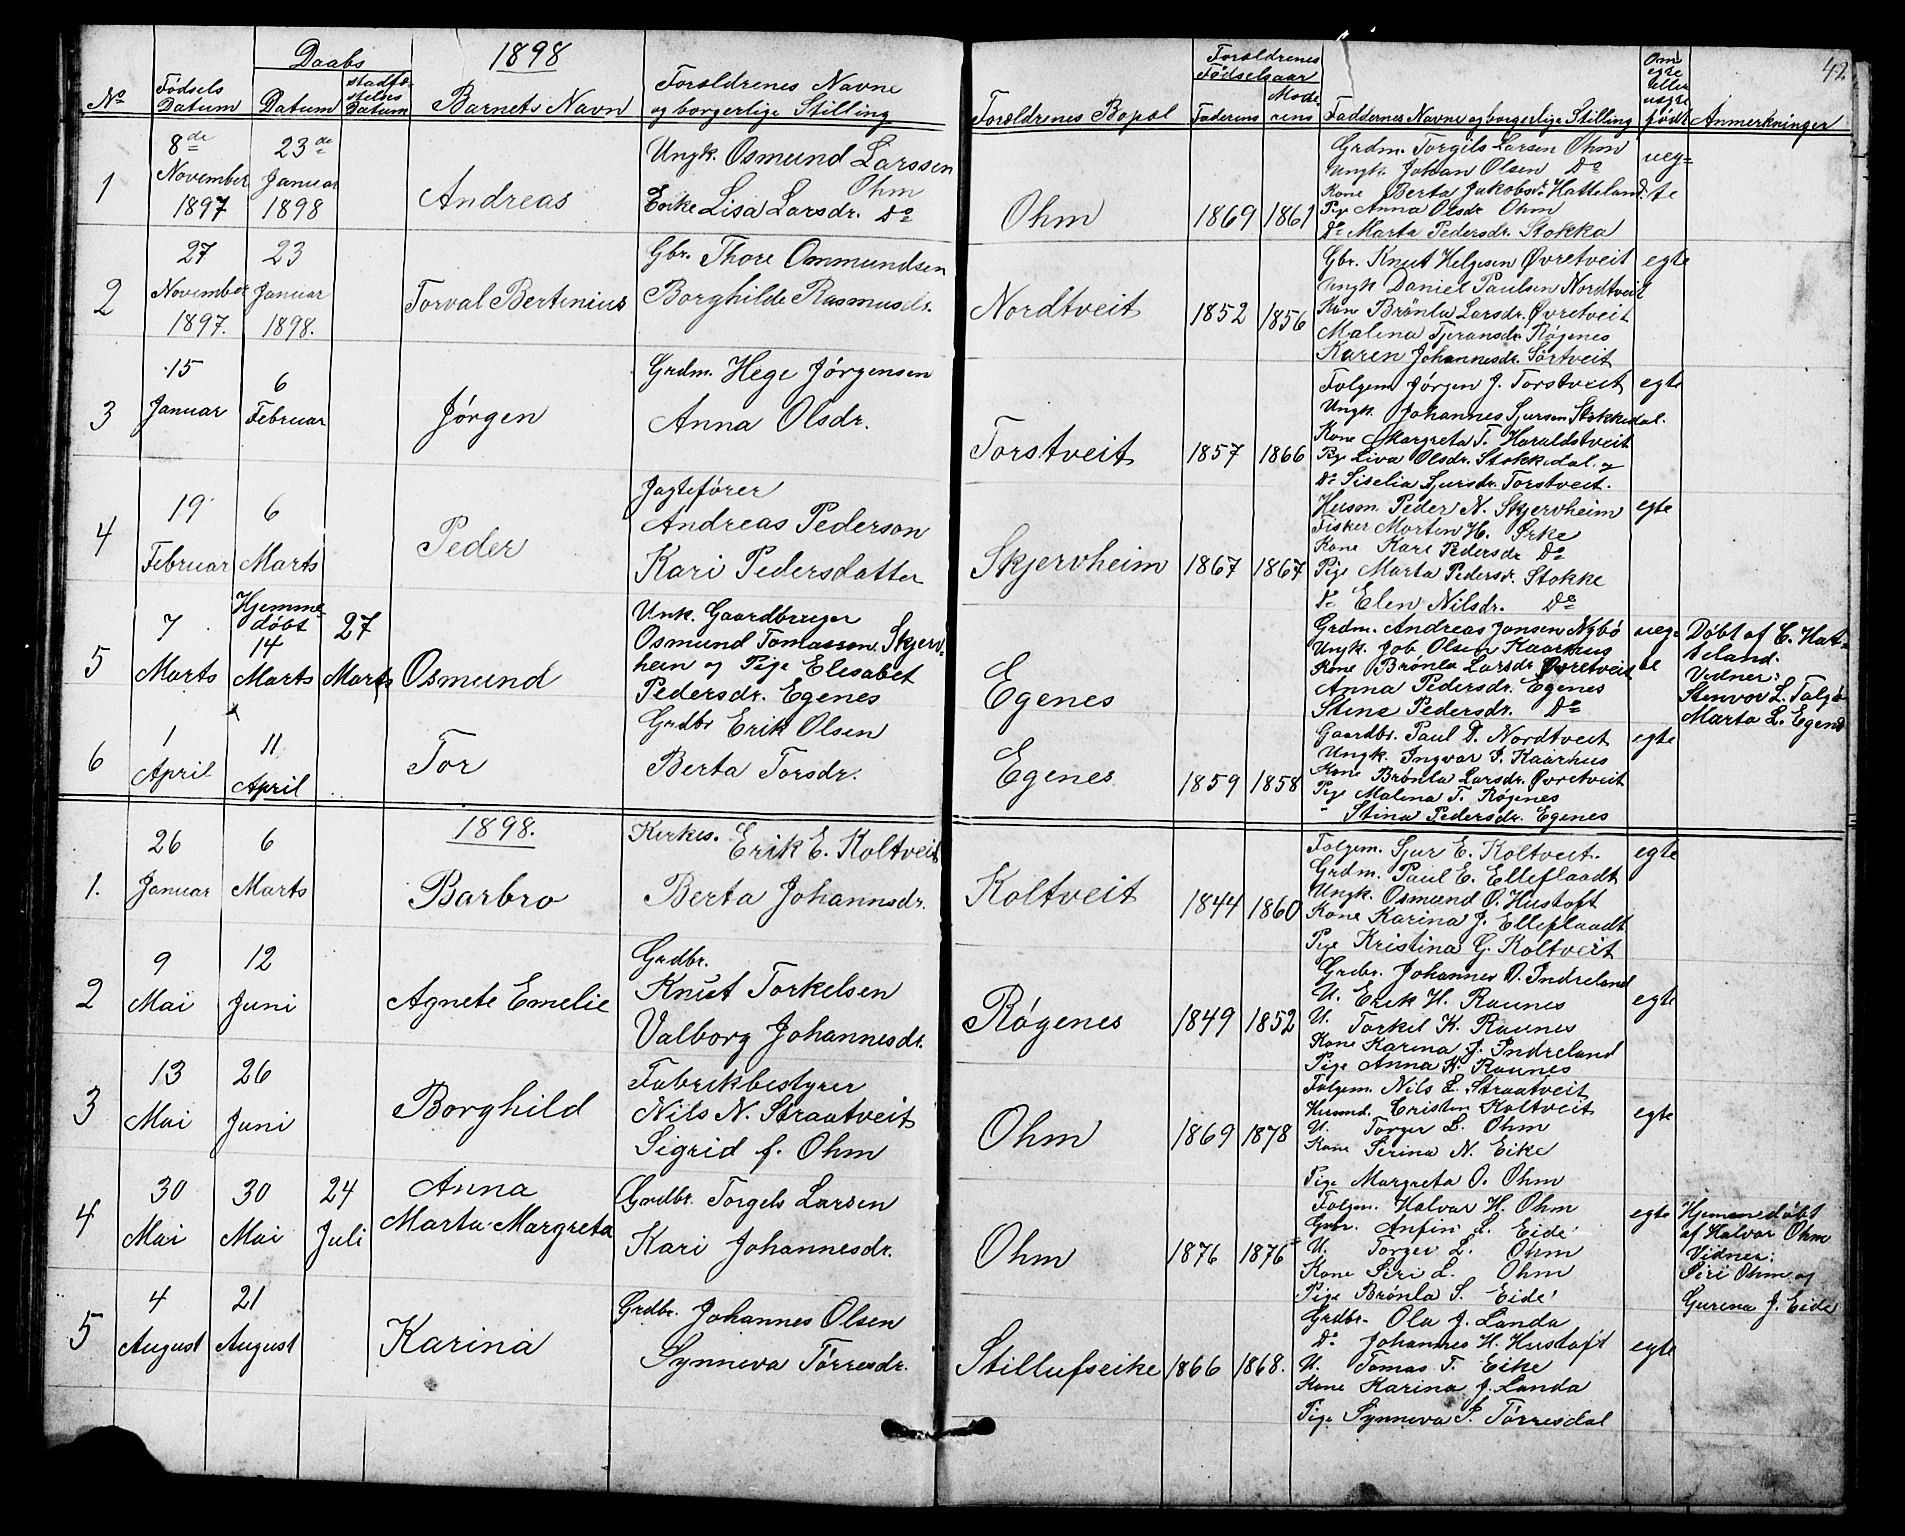 42
Daabs
1898
Forældrenes Fødselsaar
Om egte eller uegte født
No
Fødsels Datum
Datum
stadfæstelses Datum
Barnets Navn
Forældrenes Navne og borgerlige Stilling
Forældrenes Bopæl
Faderens
Moderens
Faddernes Navne og borgerlige Stilling
Anmerkninger
1
8de November 1897
23de Januar 1898
Andreas
Ungk. Osmund Larssen Ohm
Enke Lisa Larsdr. Do
Ohm
1869
1861
Grdm. Torgils Larsen Ohm
Ungk. Johan Olsen Do
Kone Berta Jakobsdr. Hatteland
Pige Anna Olsdr Ohm
Do Marta Pedersdr. Stokka
ueg=
te
2
27 November 1897.
23 Januar 1898.
Torval Bertinius
Gbr. Thore Ommundsen
Borghilde Rasmusdr.
Nordtveit
1852
1856
Gbr. Knut Helgesen Øvretveit
Ungk Daniel Paulsen Nordtveit
Kone Brønla Larsdr. Øvretveit
Malena Tjeransdr. Røgenes
Karen Johannesdr. Sørtveit
egte
3
15 Januar
6 Februar
Jørgen
Grdm. Hege Jørgensen
Anna Olsdr.
Torstveit
1857
1866
Folgem. Jørgen J. Torstveit
Ungk. Johannes Sjursen Stokkedal.
Kone Margreta T. Haraldstveit
Pige Liva Olsdr. Stokkedal. og
Do Siselia Sjursdr. Torstveit.
egte
4
19 Februar
6 Marts
Peder
Jagtefører
Andreas Pederson
Kari Pedersdatter
Skjervheim
1867
1867
Husm. Peder N. Skjervheim
Fisker Morten H. Ørke
Kone Kari Pedersdr Do
Pige Marta Pedersdr. Stokke
Do Elen Nilsdr. Do
egte
5
7 Marts
Hjemmedøbt
14 Marts
27 Marts
Osmund
Unk. Gaardbruger
Osmund Tomassen Skjerv=
heim og Pige Elisabet
Pedersdr. Egenes
Egenes
Grdm. Andreas Jansen Nybø
Ungk. Job Olsen Kaarhus
Kone Brønla Larsdr Øvretveit
Anna Pedersdr. Egenes
Stine Pedersdr. Do
ueg=
te
Døbt af C. Hat=
teland.
Vidner:
Marta L. Egenes
6
1 April
11 April
Tor
Grdbr Erik Olsen
Berta Torsdr.
Egenes
1859
1858
Gaardbr. Paul D. Nordtveit
Ungk. Ingvar J. Kaarhus
Kone Brønla Larsdr. Øvretveit
Pige Malena T. Røgenes
" Stina Pedersdr. Egenes
egte
1898.
1.
26 Januar
6 Marts
Barbro
Kirkes. Erik E. Koltveit
Berta Johannsdr.
Koltveit
1844
1860
Folgem. Sjur E. Koltveit.
Grdm. Paul E. Elleflaadt
Ungk. Osmund O. Hustoft
Kone Karina J. Elleflaadt
Pige Kristina G. Koltveit
egte
2
9 Mai
12 Juni
Agnete Emelie
Grdbr.
Knut Torkelsen
Valborg Johannesdr.
Røgenes
1849
1852
Grdbr. Johannes O. Indreland
U. Erik H. Raunes
U. Torkil K. Raunes
Kone Karina J. Indreland
Pige Anna K. Raunes
egte
3
13 Mai
26 Juni
Borghild
Fabrikbestyrer
Nils N. Straatveit
Sigrid f. Ohm
Ohm
1869
1878
Folgem. Nils L. Straatveit
Husmd. Cristen Koltveit
U. Torger L. Ohm
Kone Serina N. Eike
Pige Margreta O. Ohm
egte
4
30 Mai
30 Mai
24 Juli
Anna
Marta-Margreta
Grdbr. Torgels Larsen
Kari Johannesdr.
Ohm
1876
1876
Folgem. Halvar H. Ohm
Gbr. Anfin L. Eide
U. Torger L. Ohm
Kone Siri L. Ohm
Pige Brønla S. Eide
egte
Hjemmedøbt
af Halvor Ohm
Vidner:
Siri Ohm og
Gurena J. Eide
5
4 August
21 August
Karina
Grdbr. Johannes Olsen
Synneva Tørresdr.
Stillufseike
1866
1868.
Grdbr. Ola J. Landa
Do Johannes H. Hustoft
U. Tomas T. Eike
Kone Karina J. Landa
Pige Synneva S. Tørresdal
egte